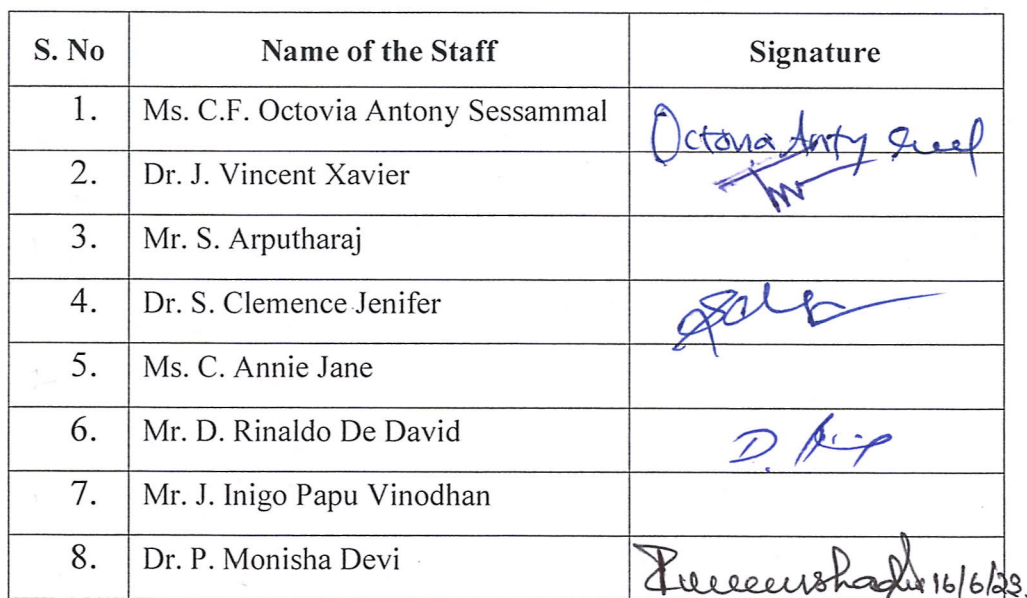 S. No Name of the Staff Signature
1. Ms. C.F. Octovia Antony Sessammal Octovia Anty
2. Dr. J. Vincent Xavier
3. Mr. S. Arputharaj
4. Dr. S. Clemence Jenifer
5. Ms. C. Annie Jane
6. Mr. D. Rinaldo De David D.
7. Mr. J. Inigo Papu Vinodhan
8. Dr. P. Monisha Devi 16/6/23.